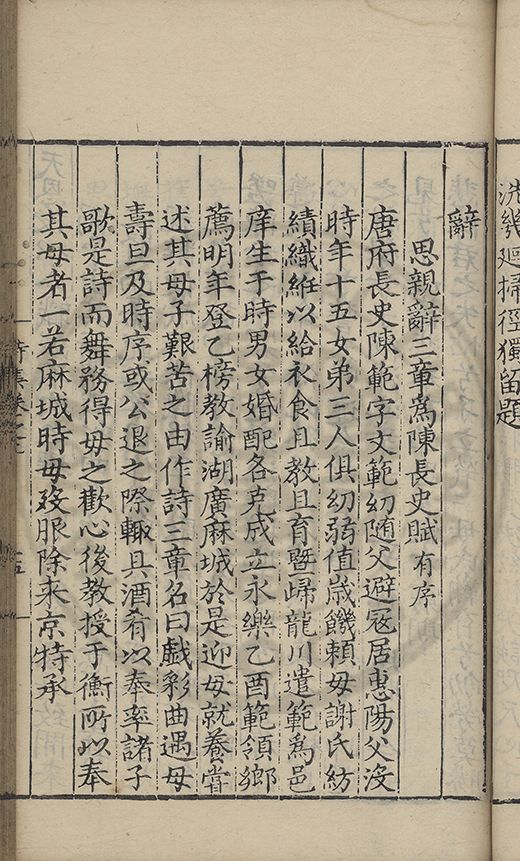 洗幾廻掃徑獨留題
辭
思親辭三章爲陳長史賦有序
唐府長史陳範字文範幼随父避冦居惠陽父沒
時年十五女弟三人俱幼弱值歲饑頼母謝氏紡
績織絍以給衣食且教且育暨歸龍川遣範爲邑
庠生于時男女婚配各克成立永樂乙酉範領鄉
薦明年登乙榜教諭湖廣麻城於是迎母就養嘗
述其母子艱苦之由作詩三章名曰戯彩曲遇母
壽旦及時序或公退之際輙具酒肴以奉率諸子
歌是詩而舞務得母之歡心後教授于衡所以奉
其母者一若麻城時母歿服除来京特承